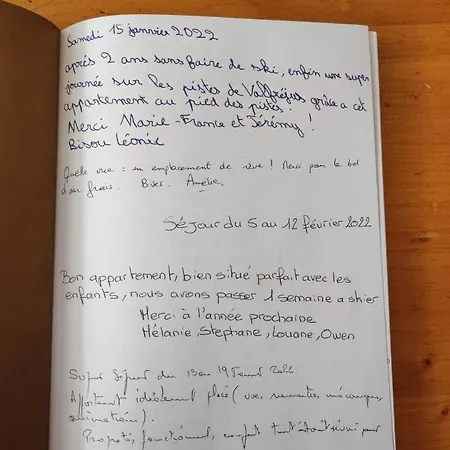 Samedi 15 janvier 2022
après 2 ans sans faire de ski, enfin une super
journée sur les pistes de Valfréjus grâce a cet
appartement au pied des pistes.
Merci Marie-France et Jérémy !
Bisou Léonie
Quelle vue : un emplacement de rêve ! Merci pour le bol
d'air frais. Bises. Amélie.
Séjour du 5 au 12 février 2022
Bon appartement, bien situé parfait avec les
enfants, nous avons passer 1 semaine a skier
Merci à l'année prochaine
Mélanie, Stephane, Louane, Owen
Super Séjour du 13 au 19 2022.
Appartement idéalement placé (vue, remontées mécaniques,
animations).
Propreté, fonctionnel, confort tout était réuni pour